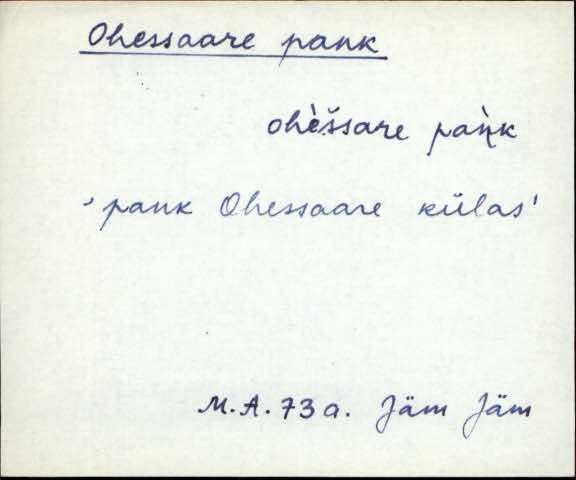 Ohessaare pank
ohè̬šsare paǹ̬k
'pank Ohessaare külas'
M.A. 73 a. Jäm Jäm